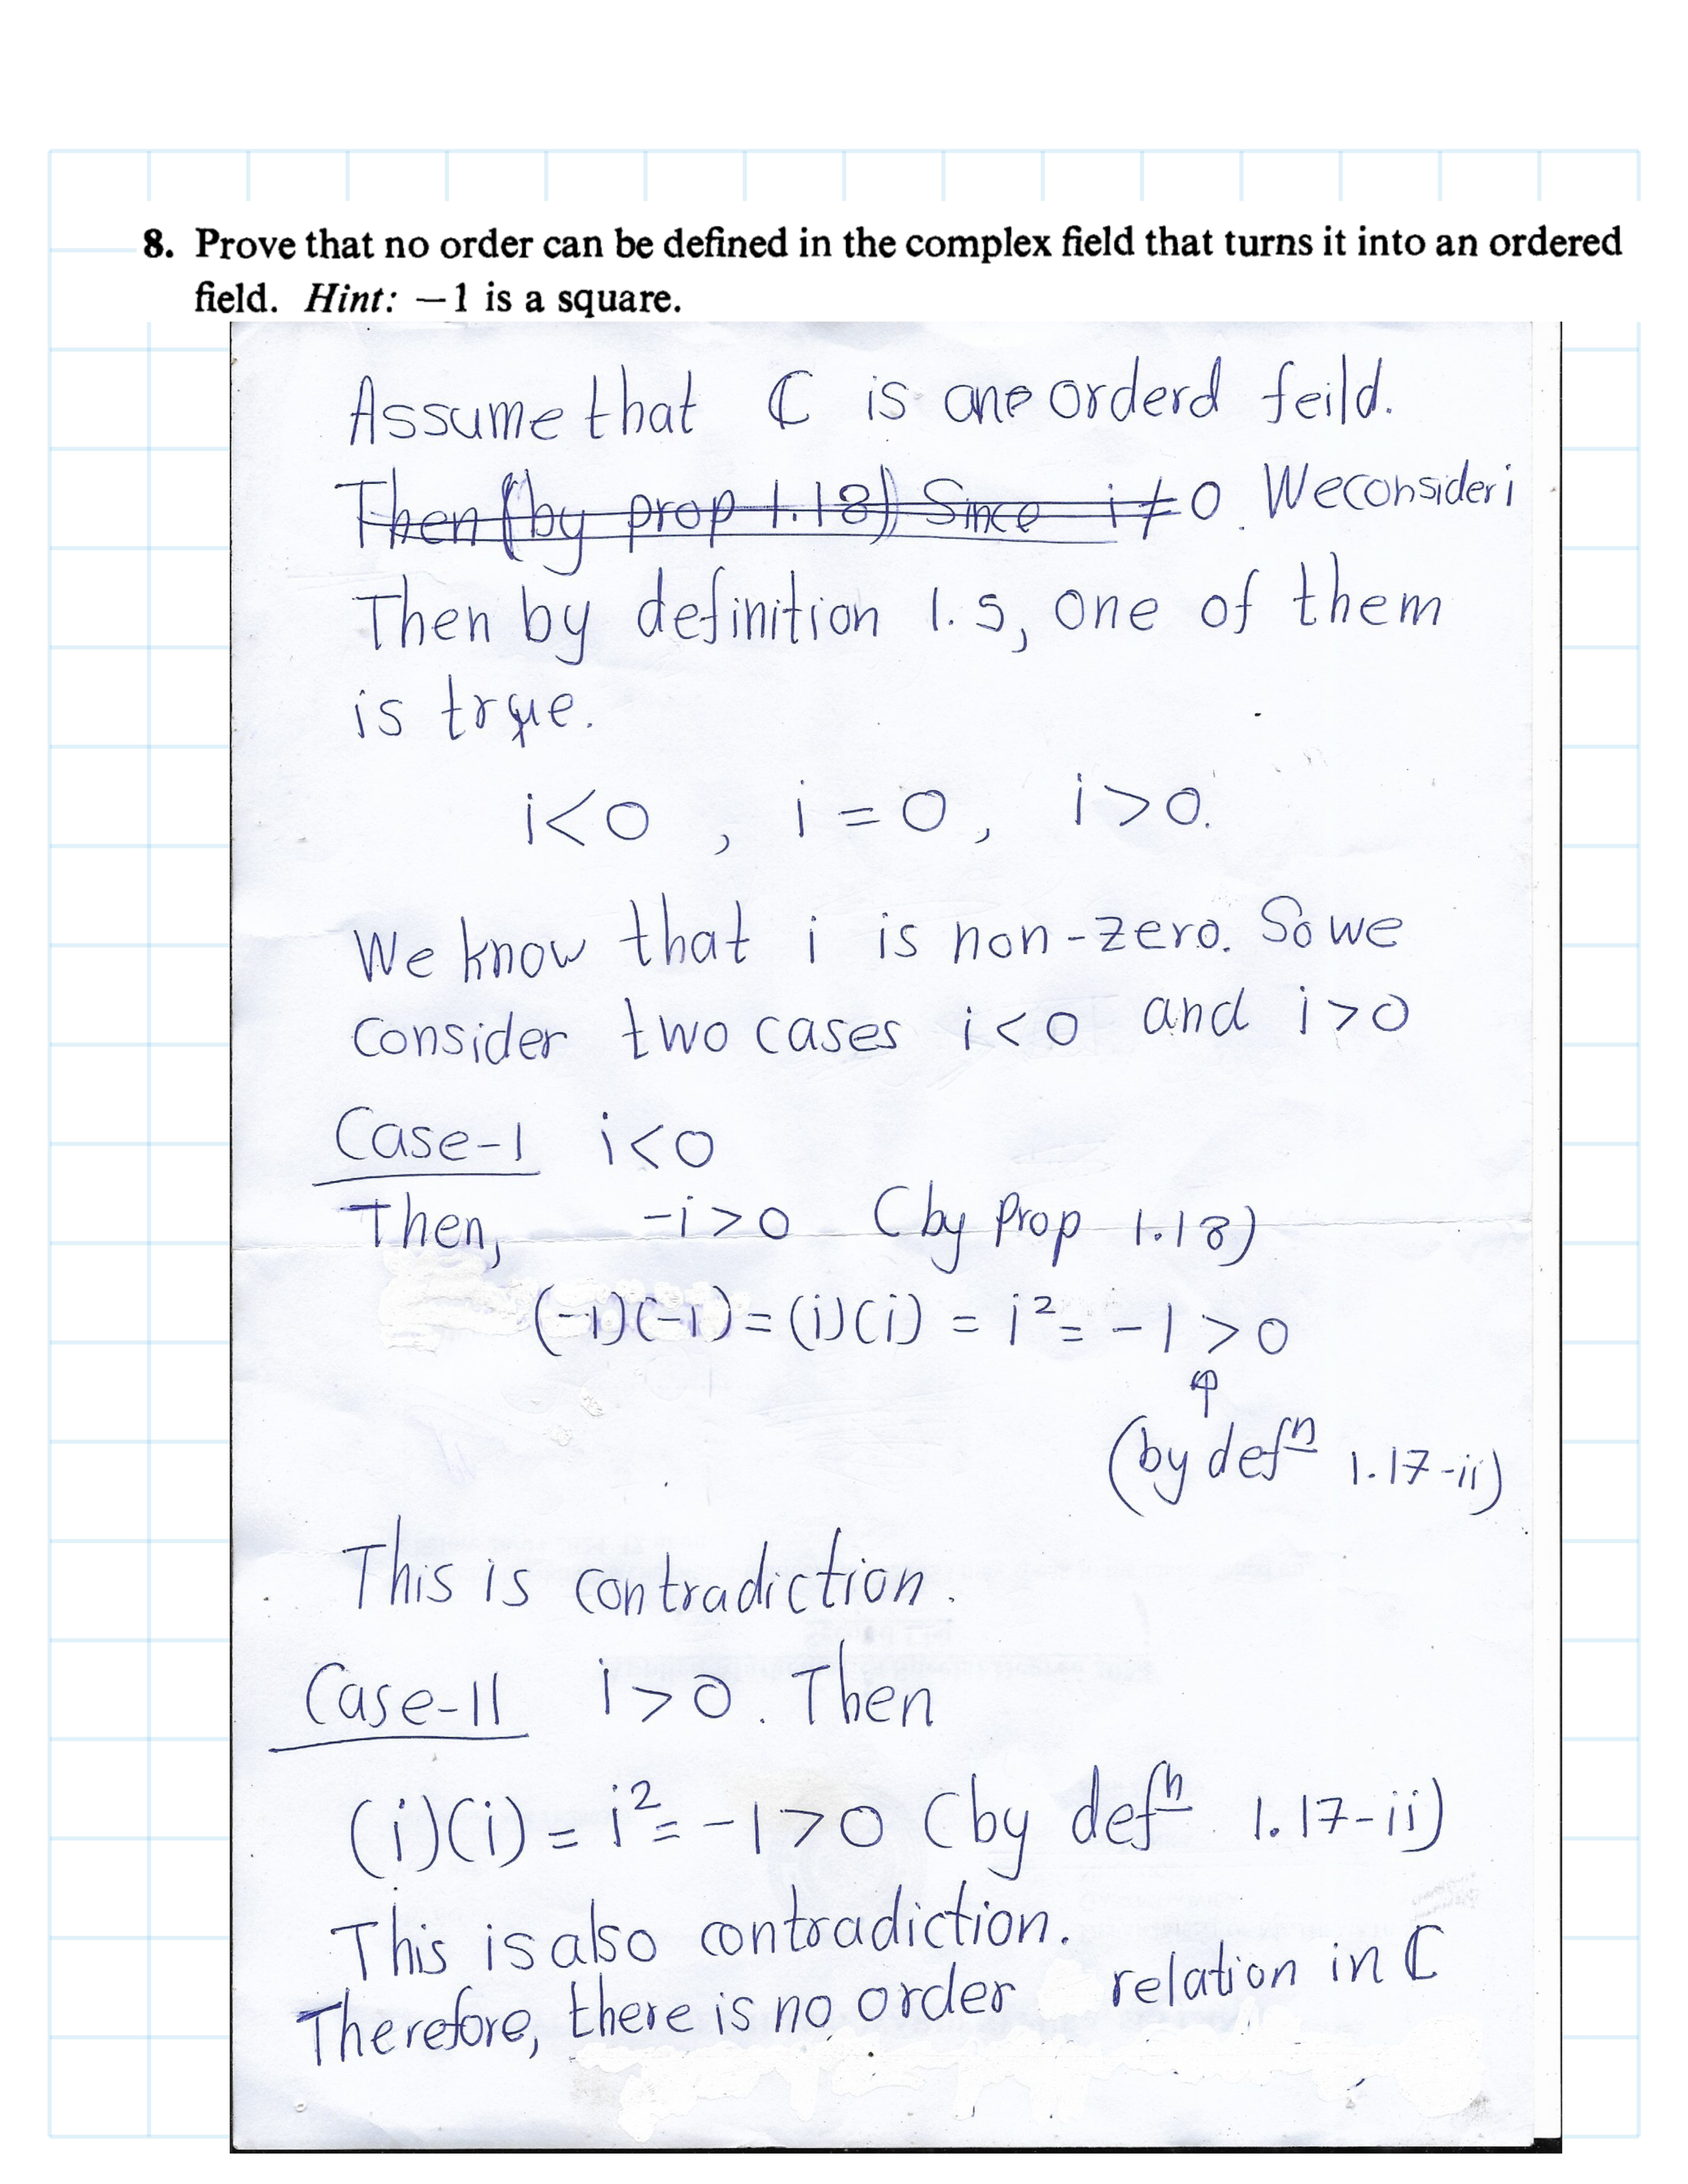 8. Prove that no order can be defined in the complex field that turns it into an ordered
field. Hint: −1 is a square.
Assume that ℂ is an orderd feild.
Then (by prop 1.18) Since i ≠ 0. We consider i
Then by definition 1.5, one of them
is true.
i<0 , i = 0, i>0.
We know that i is non-zero. So we
consider two cases i<0 and i>0
Case-I i<0
Then, -i>0 (by Prop 1.18)
(-i)(-i) = (i)(i) = i² = -1 > 0
(by defⁿ 1.17-ii)
This is contradiction.
Case-II i>0. Then
(i)(i) = i² = -1>0 (by defⁿ 1.17-ii)
This is also contradiction.
Therefore, there is no order relation in ℂ